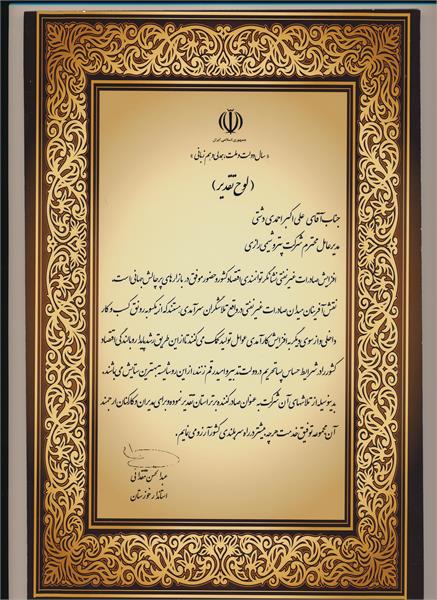 جمهوری اسلامی ایران
«سال دولت و ملت، همدلی و هم زبانی»
(لوح تقدیر)
جناب آقای علی اکبر احمدی دشتی
مدیر عامل محترم شرکت پتروشیمی رازی
افزایش صادرات غیر نفتی نشانگر توانمندی اقتصاد کشور و حضور موفق در بازارهای پر چالش جهانی است.
نقش آفرینان میدان صادرات غیر نفتی در واقع تلاشگران سرآمدی هستند که از یکسو به رونق کسب و کار
داخلی و از سوی دیگر به افزایش کارآمدی عوامل تولید کمک می کنند تا از این طریق رشد پایدار و بالندگی اقتصاد
کشور را در شرایط حساس پسا تحریم در دولت تدبیر و امید رقم زنند، از این رو شایسته بهترین ستایش می باشند.
بدینوسیله از تلاشهای آن شرکت به عنوان صادر کننده برتر استان تقدیر نموده و برای مدیران و کارکنان ارجمند
آن مجموعه توفیق خدمت هر چه بیشتر در راه سربلندی کشور آرزو می نمایم.
عبدالحسن مقتدائی
استاندار خوزستان